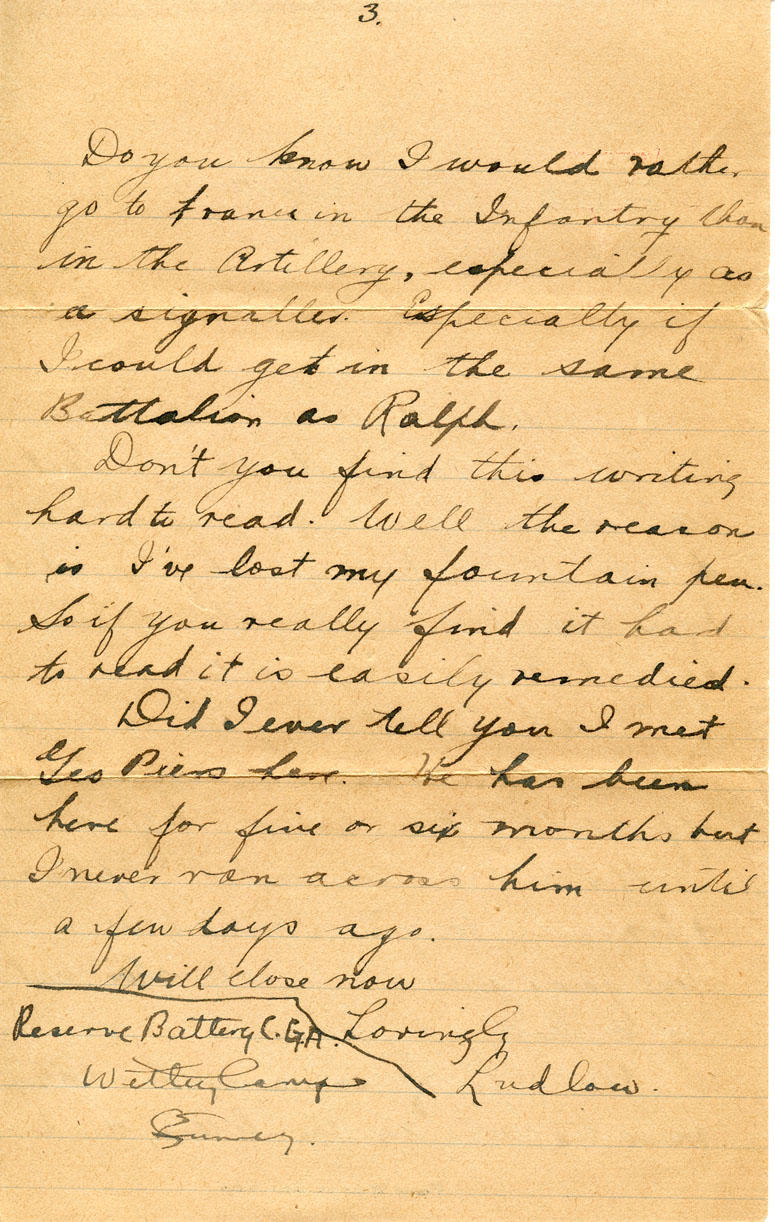 3.
Do you know I would rather
go to France in the Infantry than
in the Artillery, especially as
a signaller. Especialty if
I could get in the same
Battalion as Ralph.
Don't you find this writing
hard to read. Well the reason
is I've lost my fountain pen.
So if you really find it hard
to read it is easily remedied.
Did I ever tell you I met
Geo Piers here. He has been
here for five or six months but
I never ran across him until
a few days ago.
Will close now
Reserve Battery C.G.A. Lovingly
Witley Camp Ludlow.
Surrey.